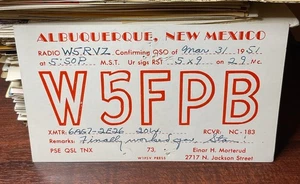 ALBUQUERQUE, NEW MEXICO
RADIO W5RVZ Confirming QSO of Mar. 31 1951
at 5:50P M.S.T. Ur sigs RST 5x9 on 29 Mc.
W5FPB
XMTR: 6AG7-2E26 20w RCVR: NC-183
Remarks: Finally worked you, Stan
PSE QSL TNX 73, Einar H. Morterud
W5FEV PRESS 2717 N. Jackson Street